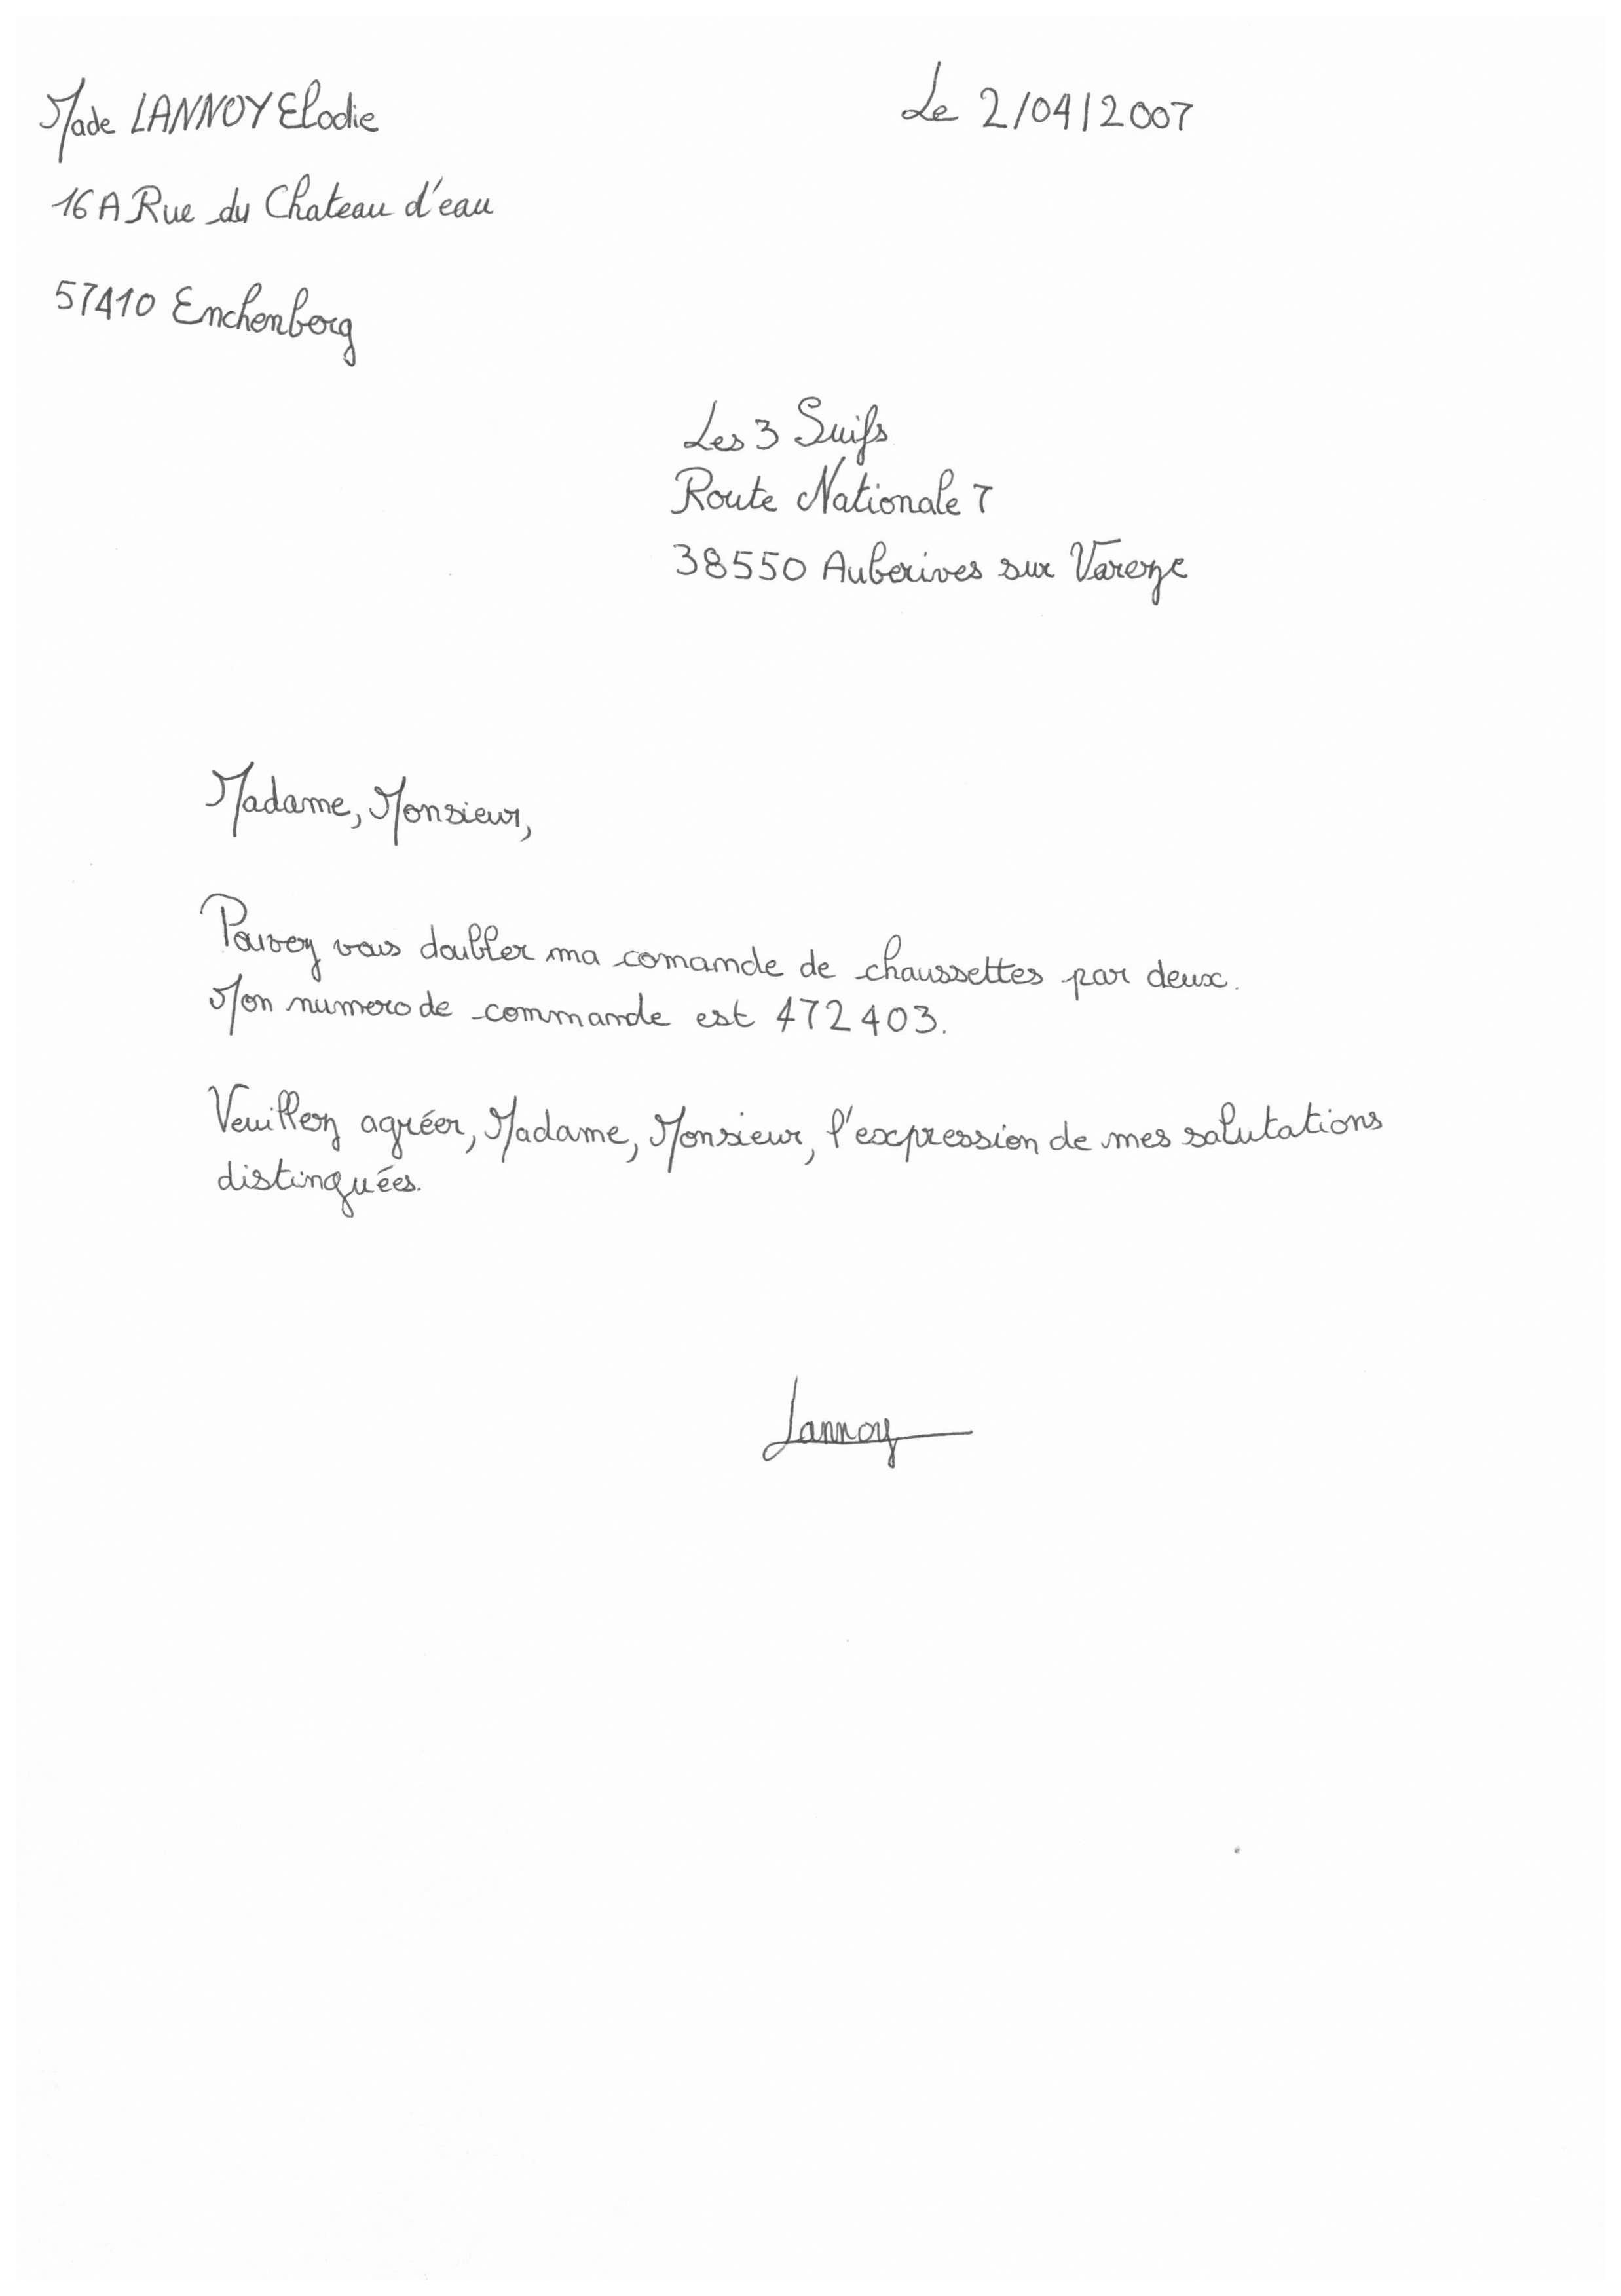 Made LANNOY Elodie
Le 2/04/2007
16A Rue du Chateau d'eau
57410 Enchenberg
Les 3 Suifs
Route Nationale 7
38550 Auberives sur Vareze
Madame, Monsieur,
Pouvez vous doubler ma comande de chaussettes par deux.
Mon numero de commande est 472403.
Veuillez agréer, Madame, Monsieur, l'expression de mes salutations
distinquées.
Lannoy